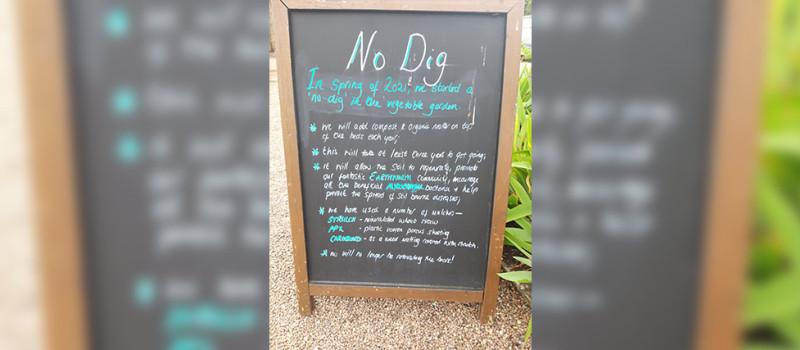 No Dig
In Spring of 2021, we started a
'no-dig' in the vegetable garden.
* We will add compost & organic matter on top
of the beds each year;
* this will take at least three years to get going;
* it will allow the soil to regenerate, promote
our fantastic EARTHWORM community, encourage
all the beneficial mycorrhizal bacteria & help
prevent the spread of soil borne diseases;
* We have used a number of mulches —
STRULCH - mineralated wheat straw
- plastic woven porous sheeting
CARDBOARD - as a weed matting covered with strulch.
* We will no longer be rotavating the